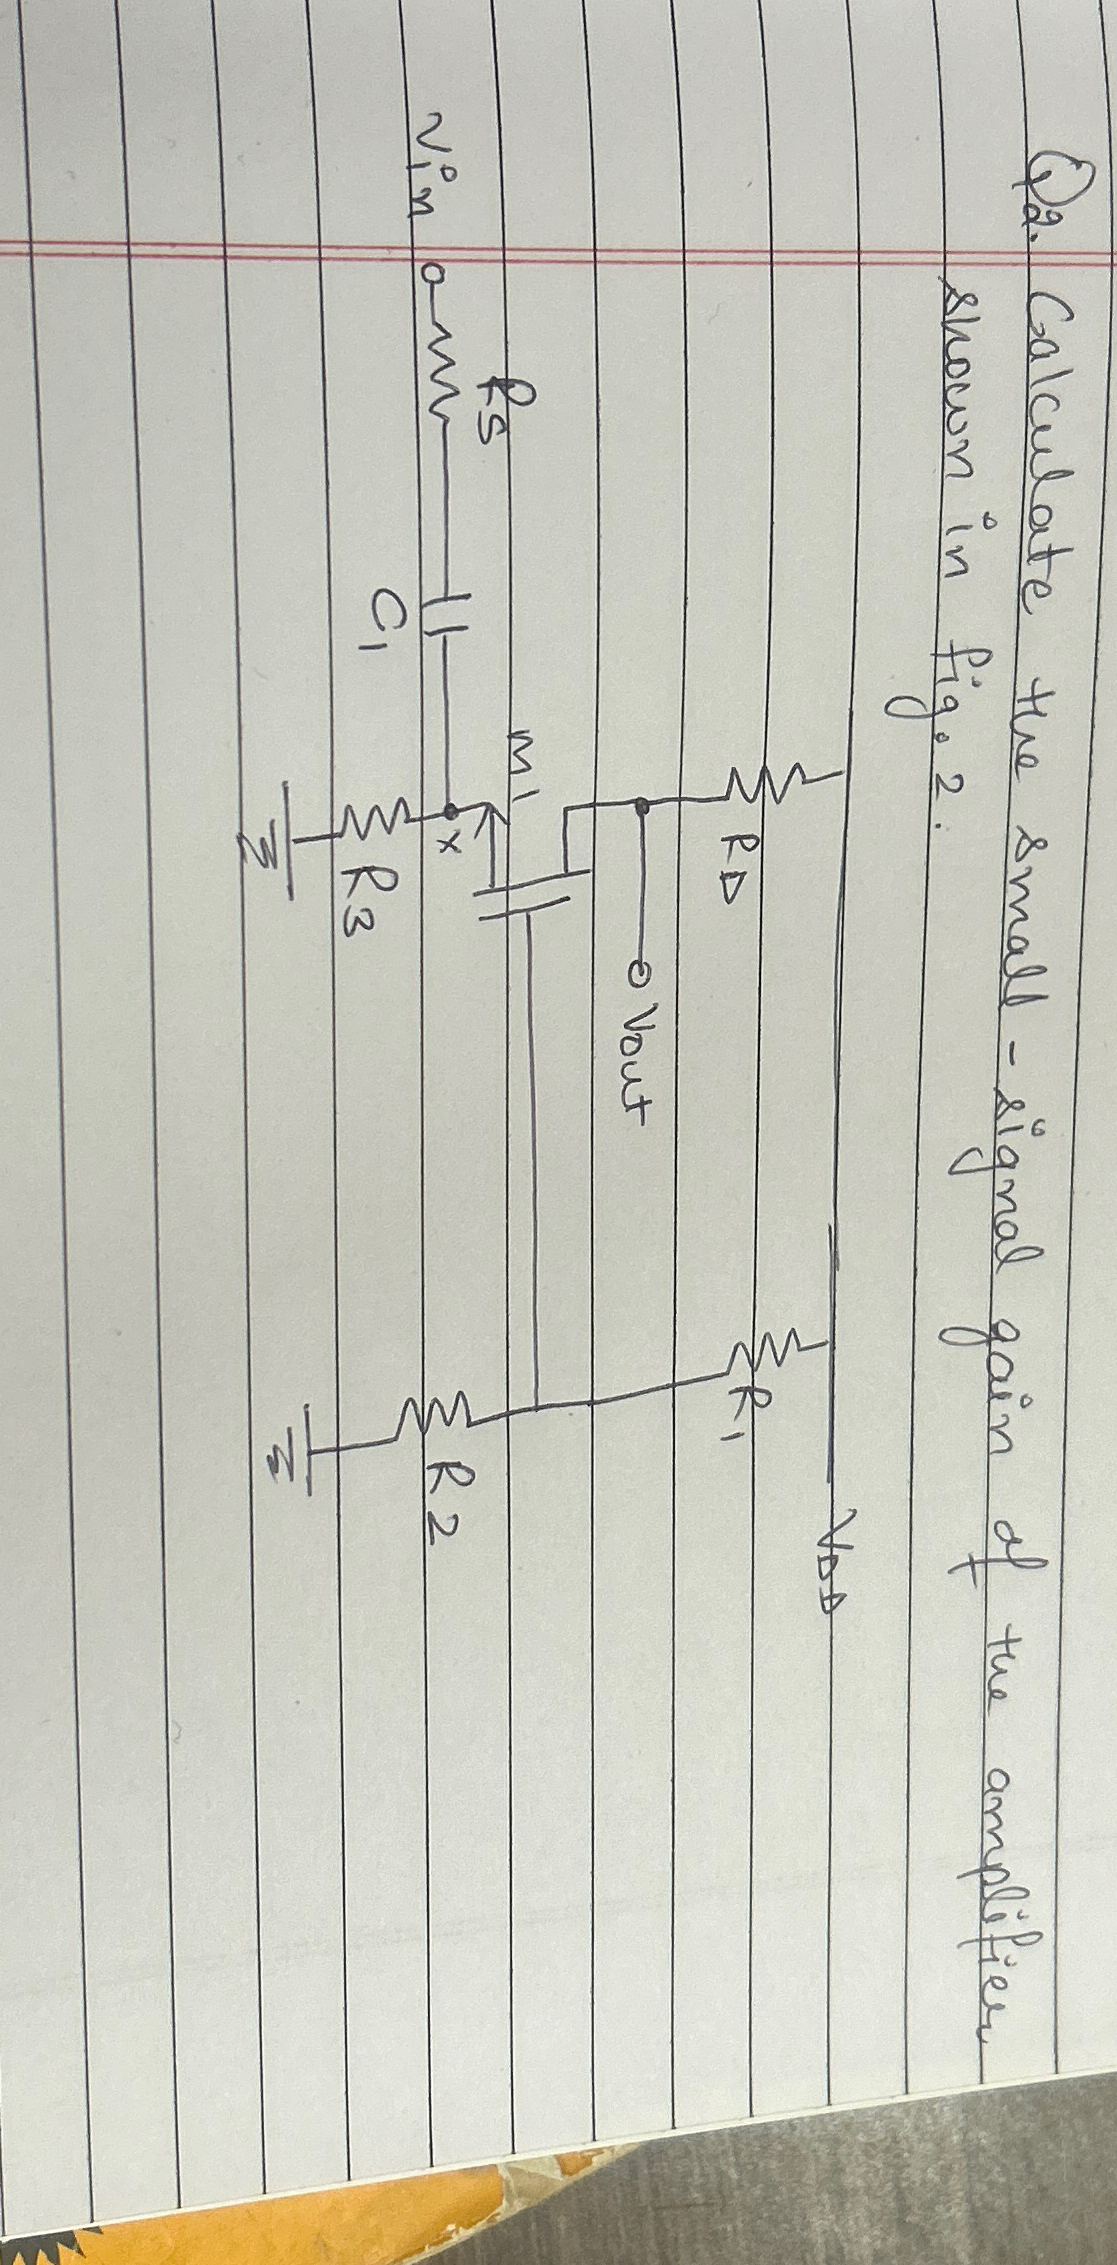 Q2. Calculate the small-signal gain of the amplifier
shown in fig. 2.
VDD
RD
R1
Vout
M1
Vin
RS
C1
X
R3
R2